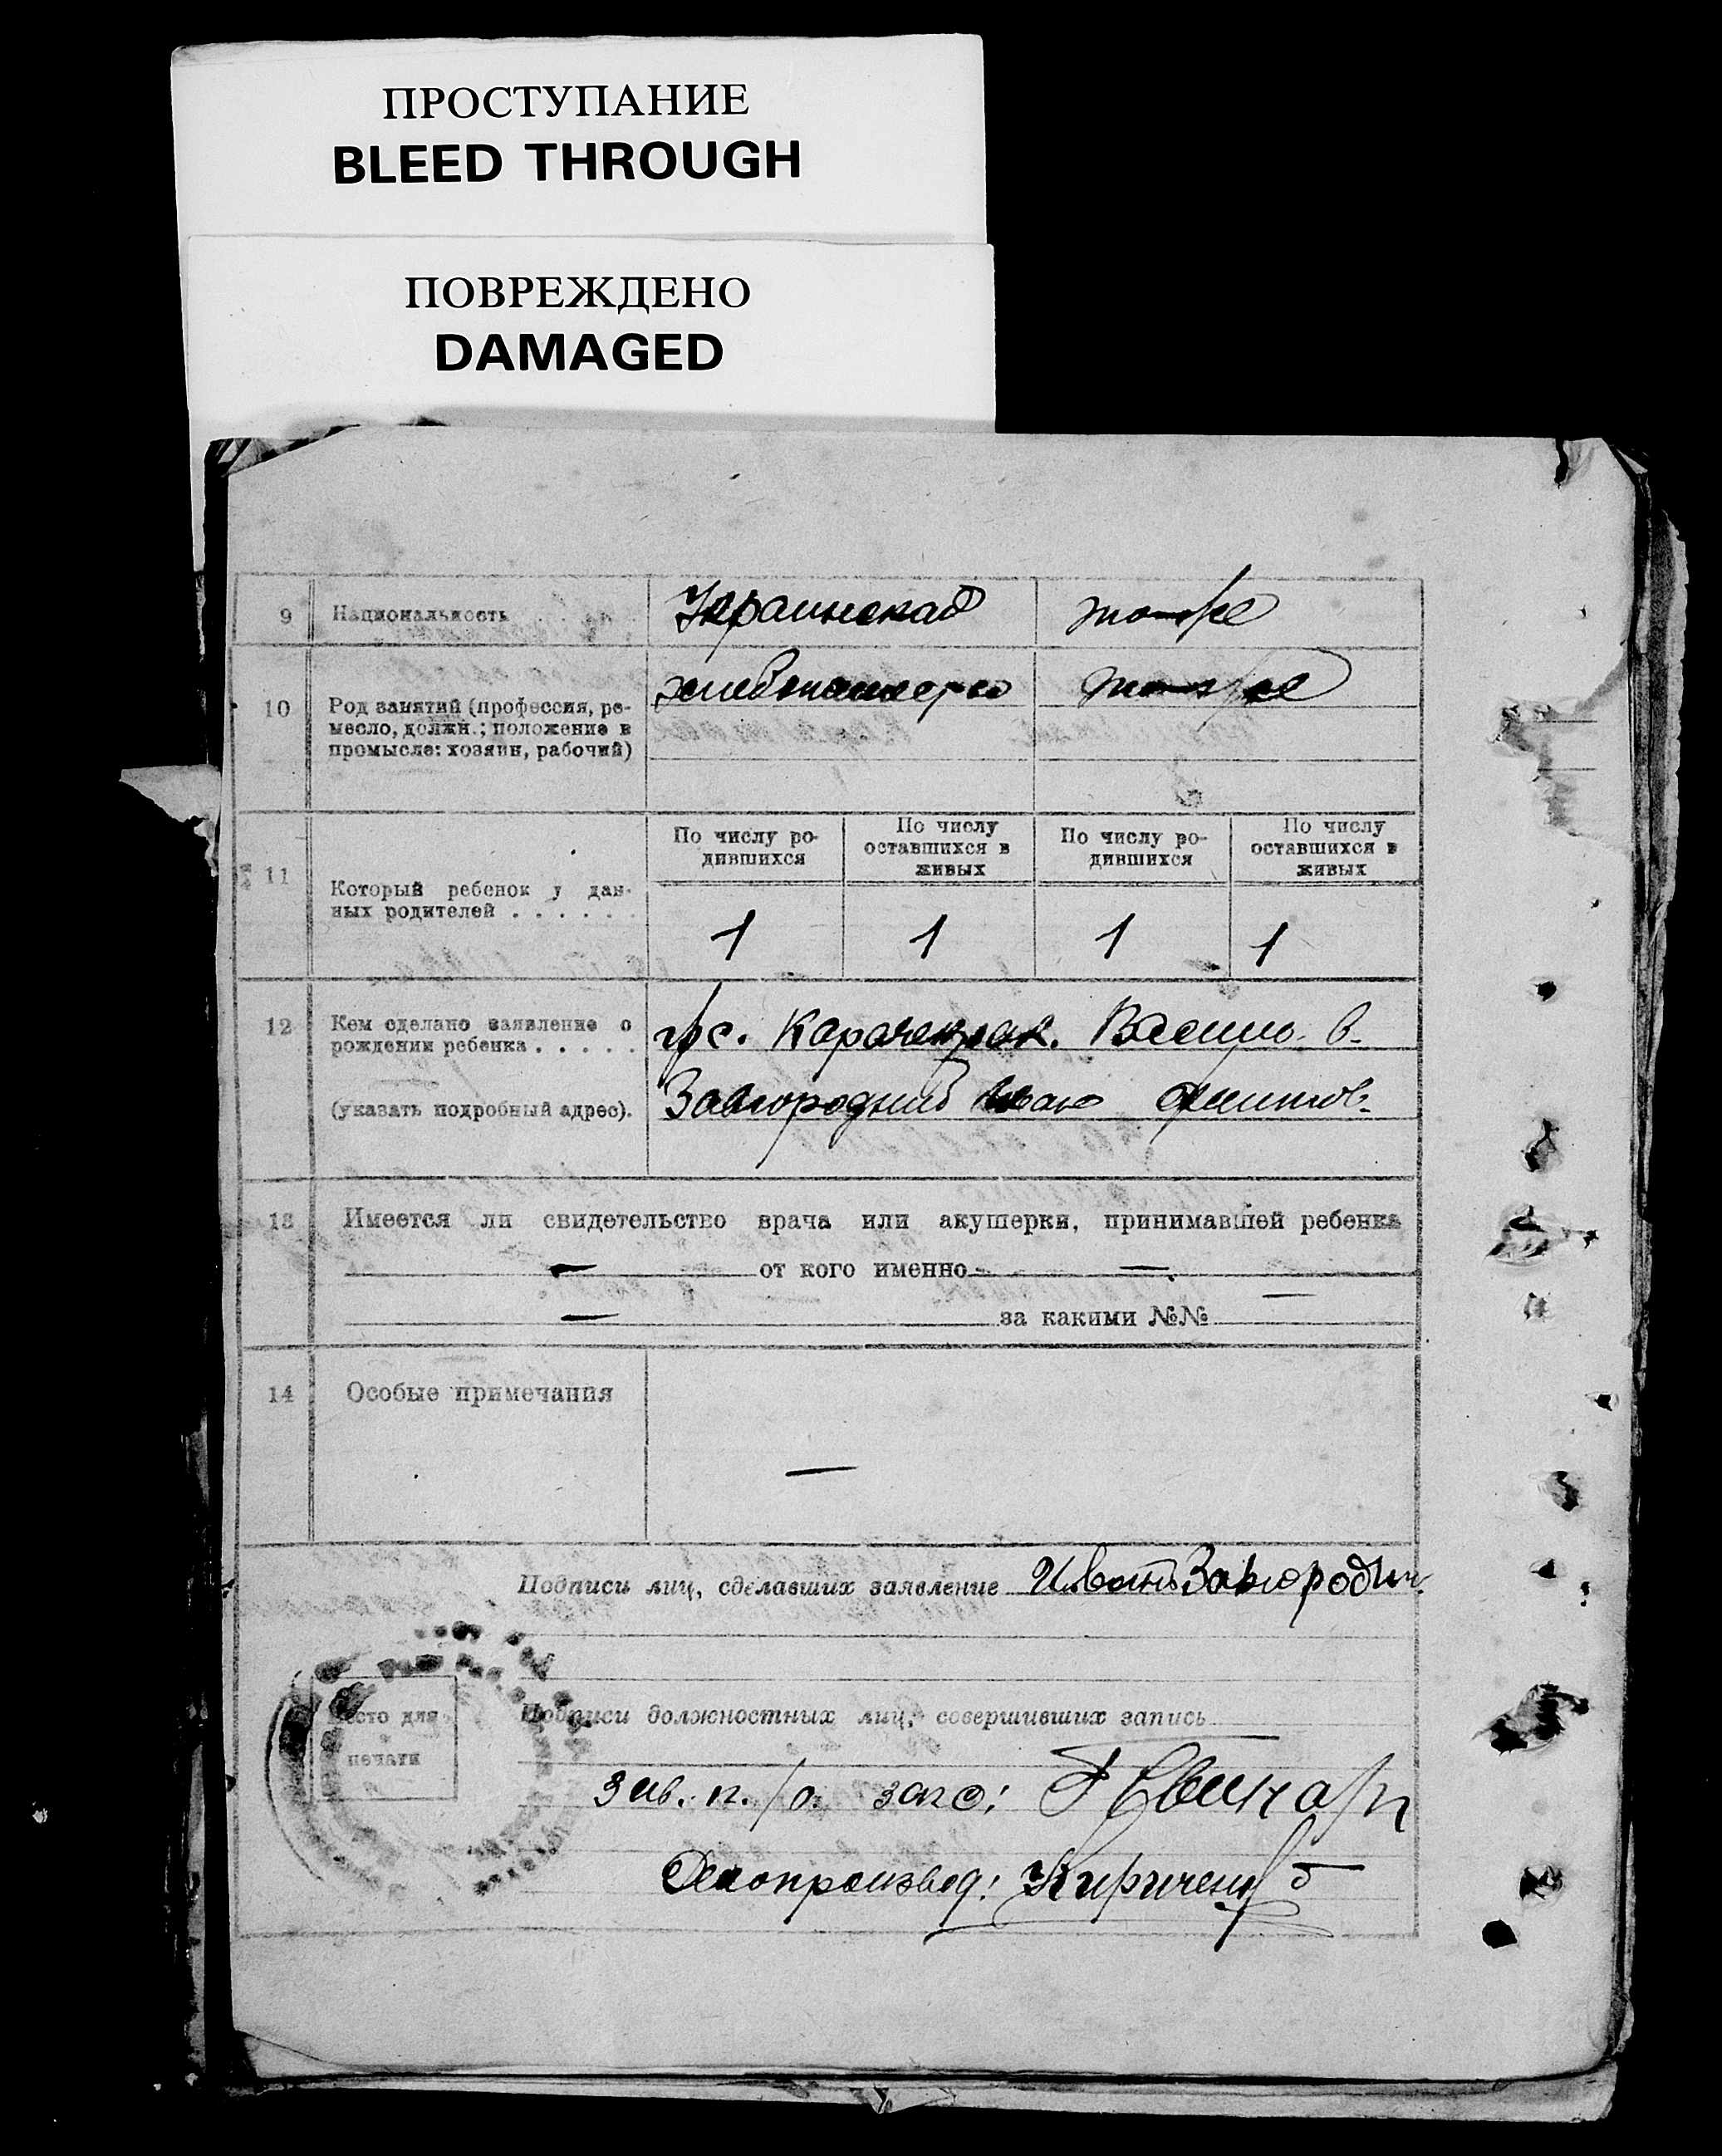 ПРОСТУПАНИЕ
BLEED THROUGH
ПОВРЕЖДЕНО
DAMAGED
9 Национальность . . . . Украинская тоже
10 Род занятий (профессия, ре-
месло, должн.; положение в
промысле: хозяин, рабочий)
хлебопашество тоже
11 Который ребенок у дан-
ных родителей . . . . . .
По числу ро-
дившихся
По числу
оставшихся в
живых
По числу ро-
дившихся
По числу
оставшихся в
живых
1 1 1 1
12 Кем сделано заявление о
рождении ребенка . . . . .
(указать подробный адрес).
гр. с. Василь. в.
Завгородний Иван
13 Имеется ли свидетельство врача или акушерки, принимавшей ребенка
— от кого именно —
— за какими №№ —
14 Особые примечания
—
Подписи лиц, сделавших заявление Иванъ Завгородн.
Место для
печати
Подписи должностных лиц, совершивших запись
Зав. п./о. загс:
Делопроизвод: Кириченко